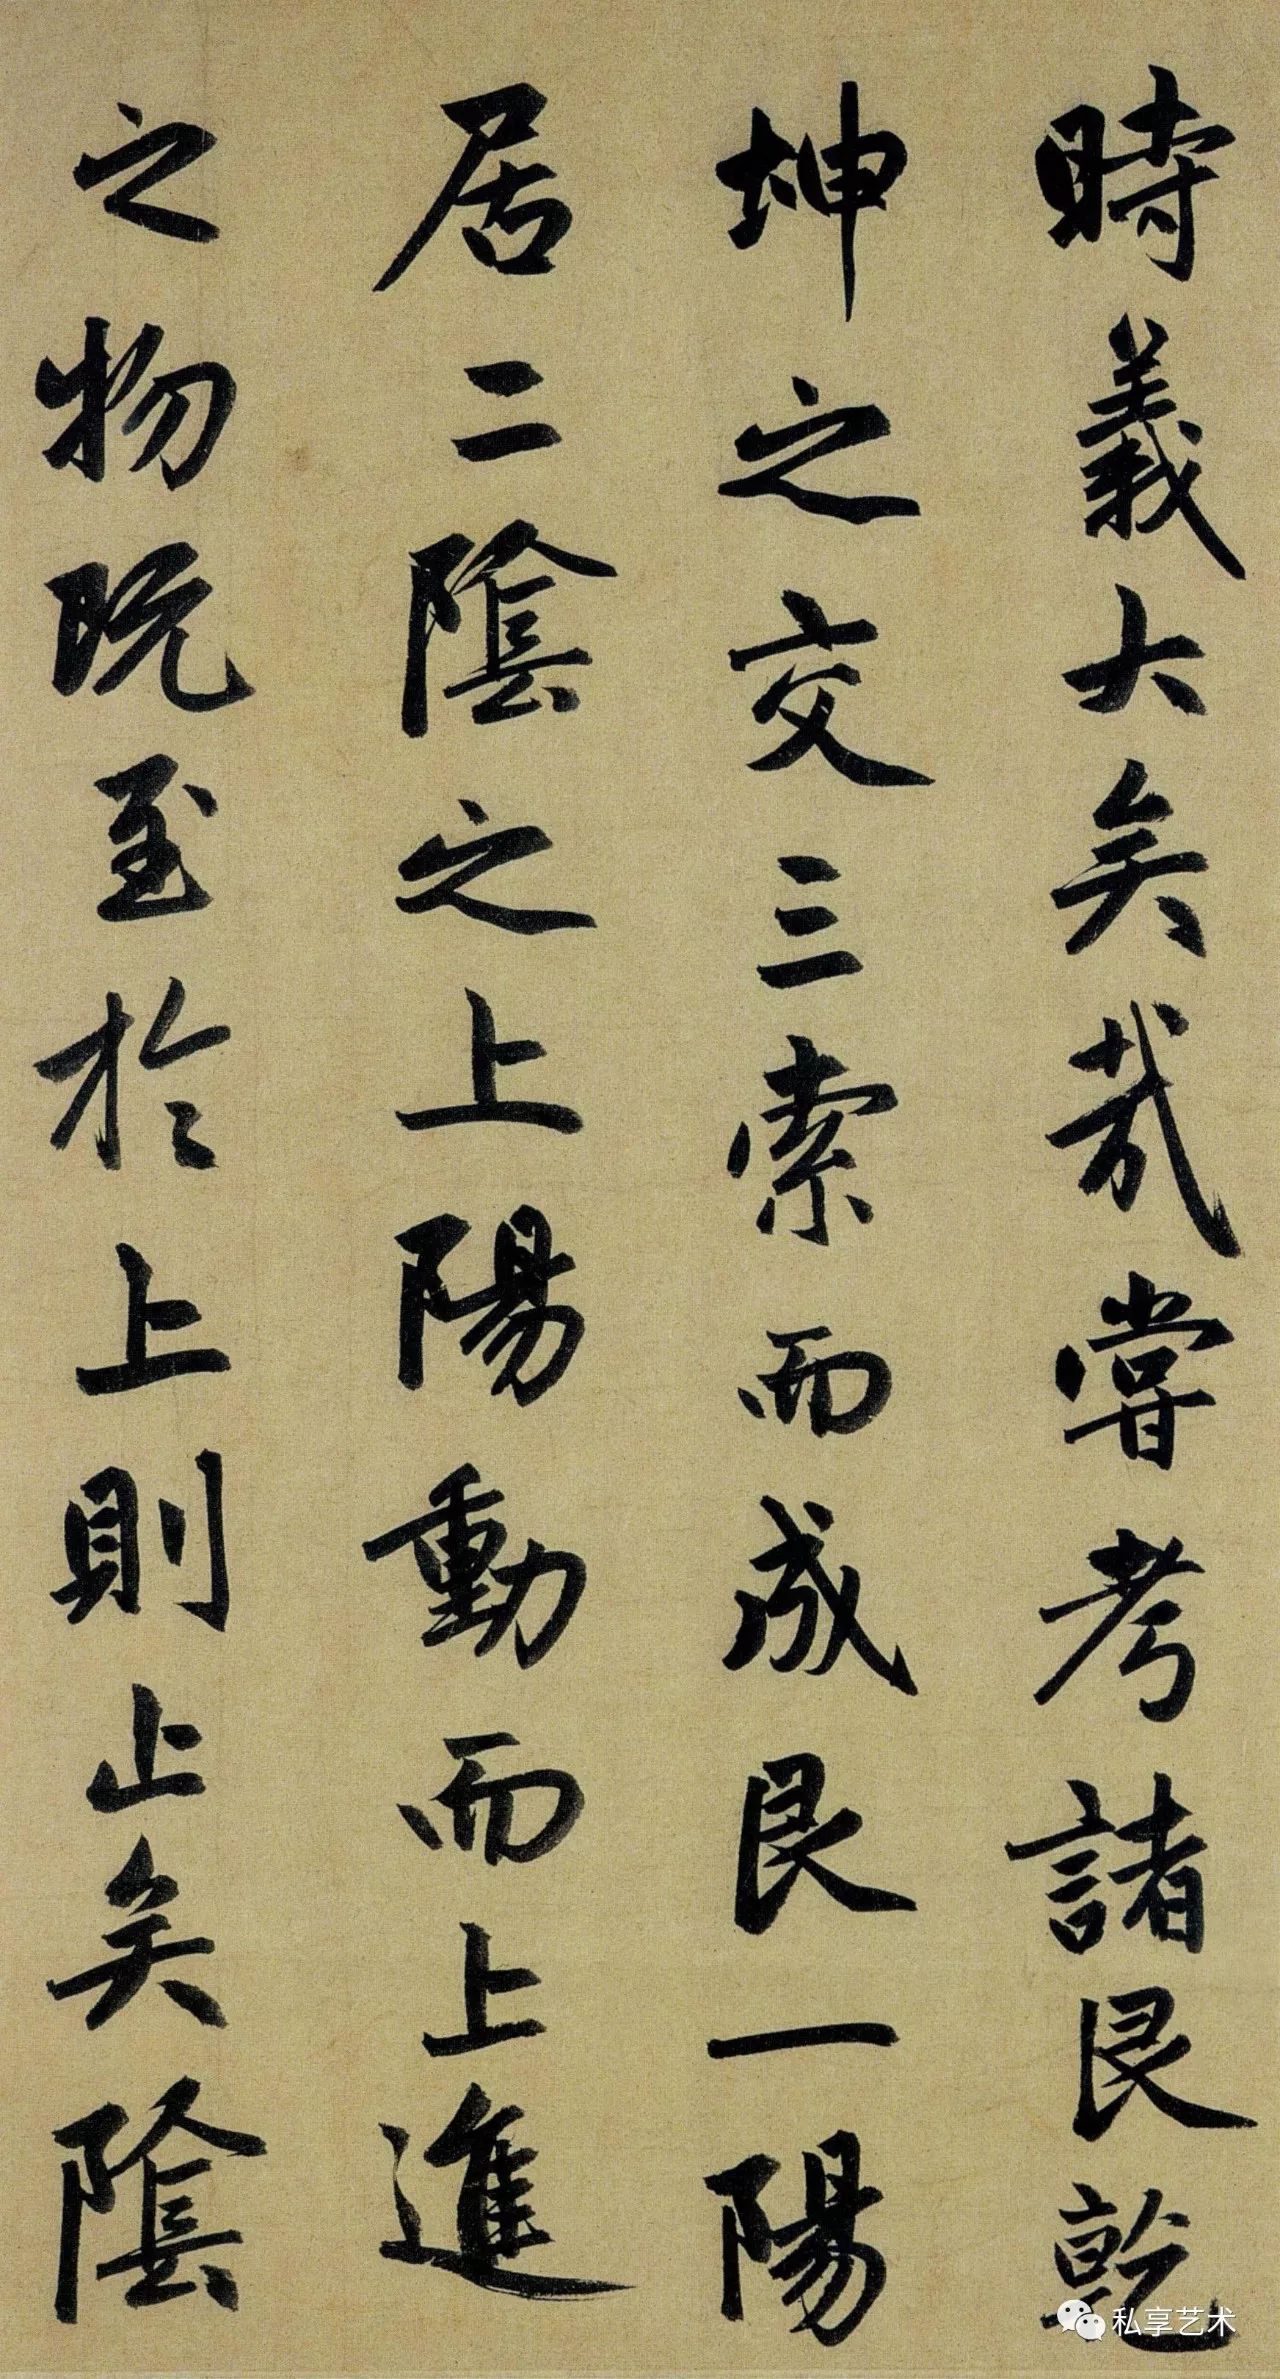 時義大矣哉嘗考諸艮乾
坤之交三索而成艮一陽
居二陰之上陽動而上進
之物既至於上則止矣陰
私享艺术